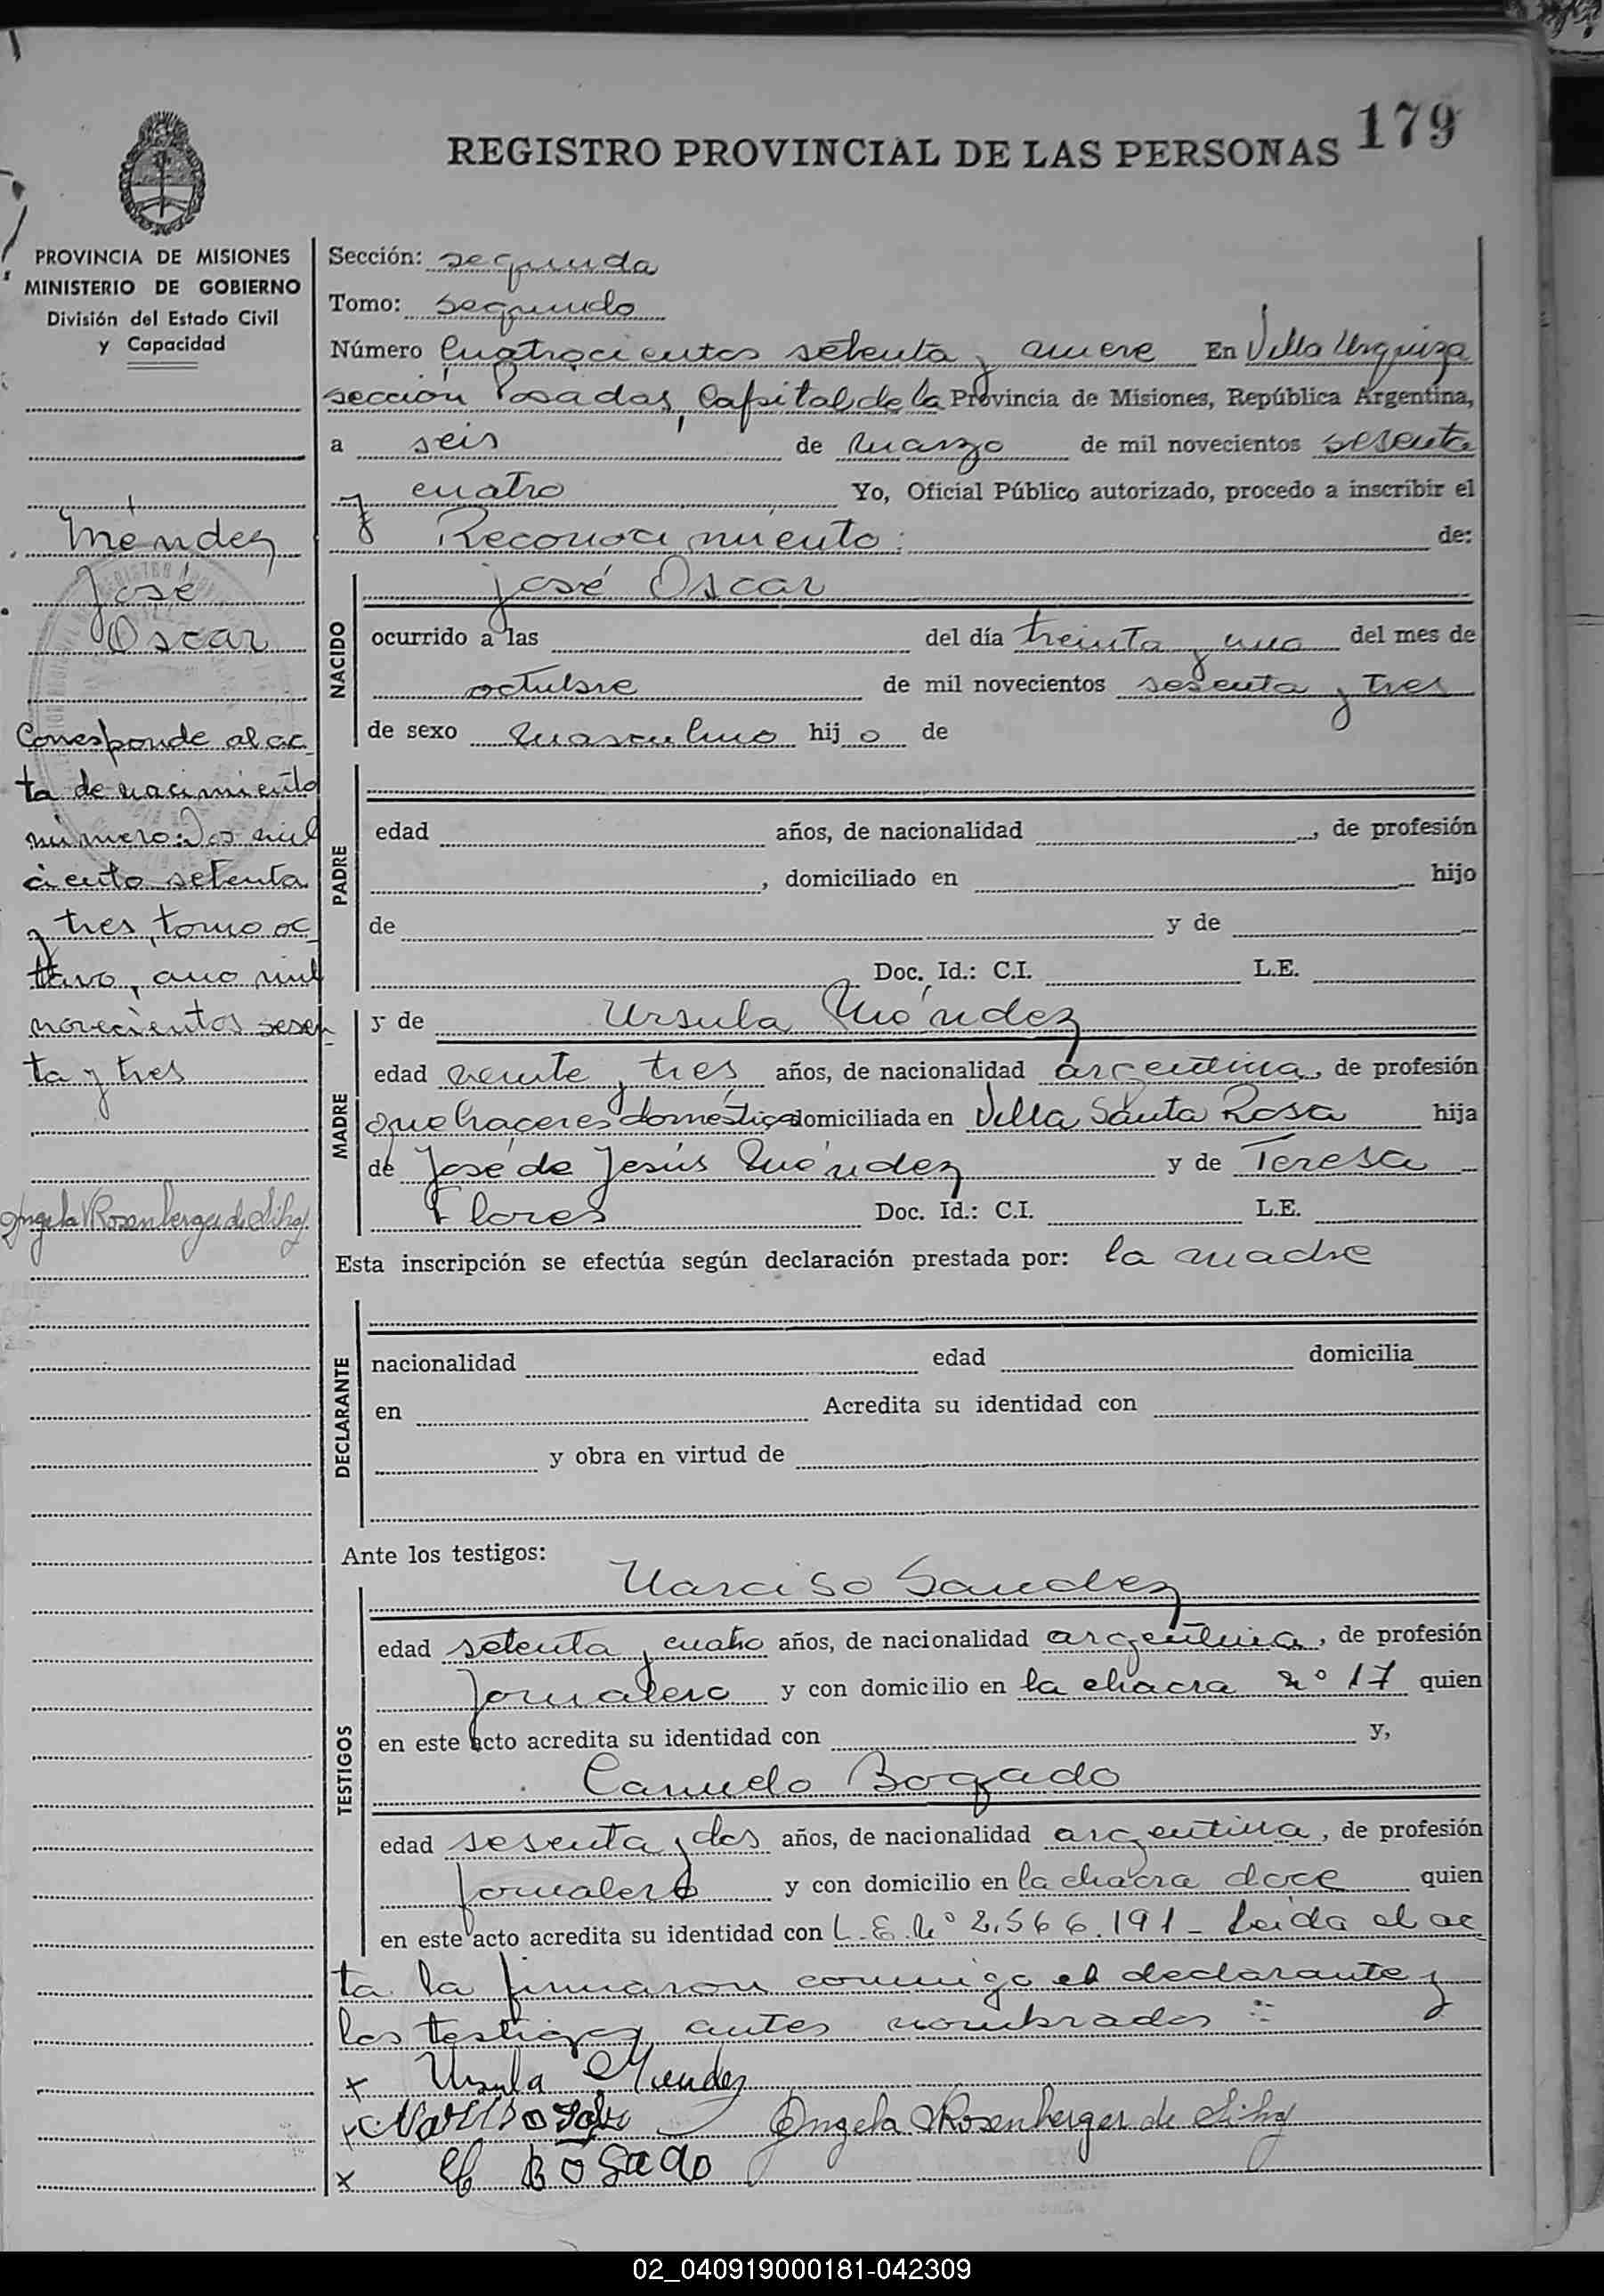 179
REGISTRO PROVINCIAL DE LAS PERSONAS
PROVINCIA DE MISIONES
MINISTERIO DE GOBIERNO
División del Estado Civil
y Capacidad
Méndez
José
Oscar
Corresponde al ac
ta de nacimiento
número: Dos mil
ciento setenta
y tres, tomo oc
tavo, año mil
novecientos sesen
ta y tres
Angela V Rosenberger de
Sección: segunda
Tomo: segundo
Número Cuatrocientos setenta y nueve En Villa Urquiza
sección Posadas, Capital de la Provincia de Misiones, República Argentina,
a seis de marzo de mil novecientos sesenta
y cuatro Yo, Oficial Público autorizado, procedo a inscribir el
Reconocimiento: de:
NACIDO
José Oscar
ocurrido a las del día treinta y uno del mes de
octubre de mil novecientos sesenta y tres
de sexo masculino hij o de
PADRE
edad años, de nacionalidad , de profesión
, domiciliado en hijo
de y de
Doc. Id.: C.I. L.E.
MADRE
y de Ursula Méndez
edad veinte y tres años, de nacionalidad argentina, de profesión
quehaceres domésticos domiciliada en Villa Santa Rosa hija
de José de Jesús Méndez y de Teresa
Flores Doc. Id.: C.I. L.E.
Esta inscripción se efectúa según declaración prestada por: la madre
DECLARANTE
nacionalidad edad domicilia
en Acredita su identidad con
y obra en virtud de
Ante los testigos:
TESTIGOS
Narciso Sandez
edad setenta y cuatro años, de nacionalidad argentina, de profesión
Jornalero y con domicilio en la chacra nº 17 quien
en este acto acredita su identidad con y,
Canuelo Bogado
edad sesenta y dos años, de nacionalidad argentina, de profesión
jornalero y con domicilio en la chacra doce quien
en este acto acredita su identidad con L.E. Nº 2.566.191 - Leída el ac
ta la firmaron conmigo el declarante y
los testigos antes nombrados
x Ursula Mendez
x Narciso
Angela V Rosenberger de
x Bogado
02_040919000181-042309